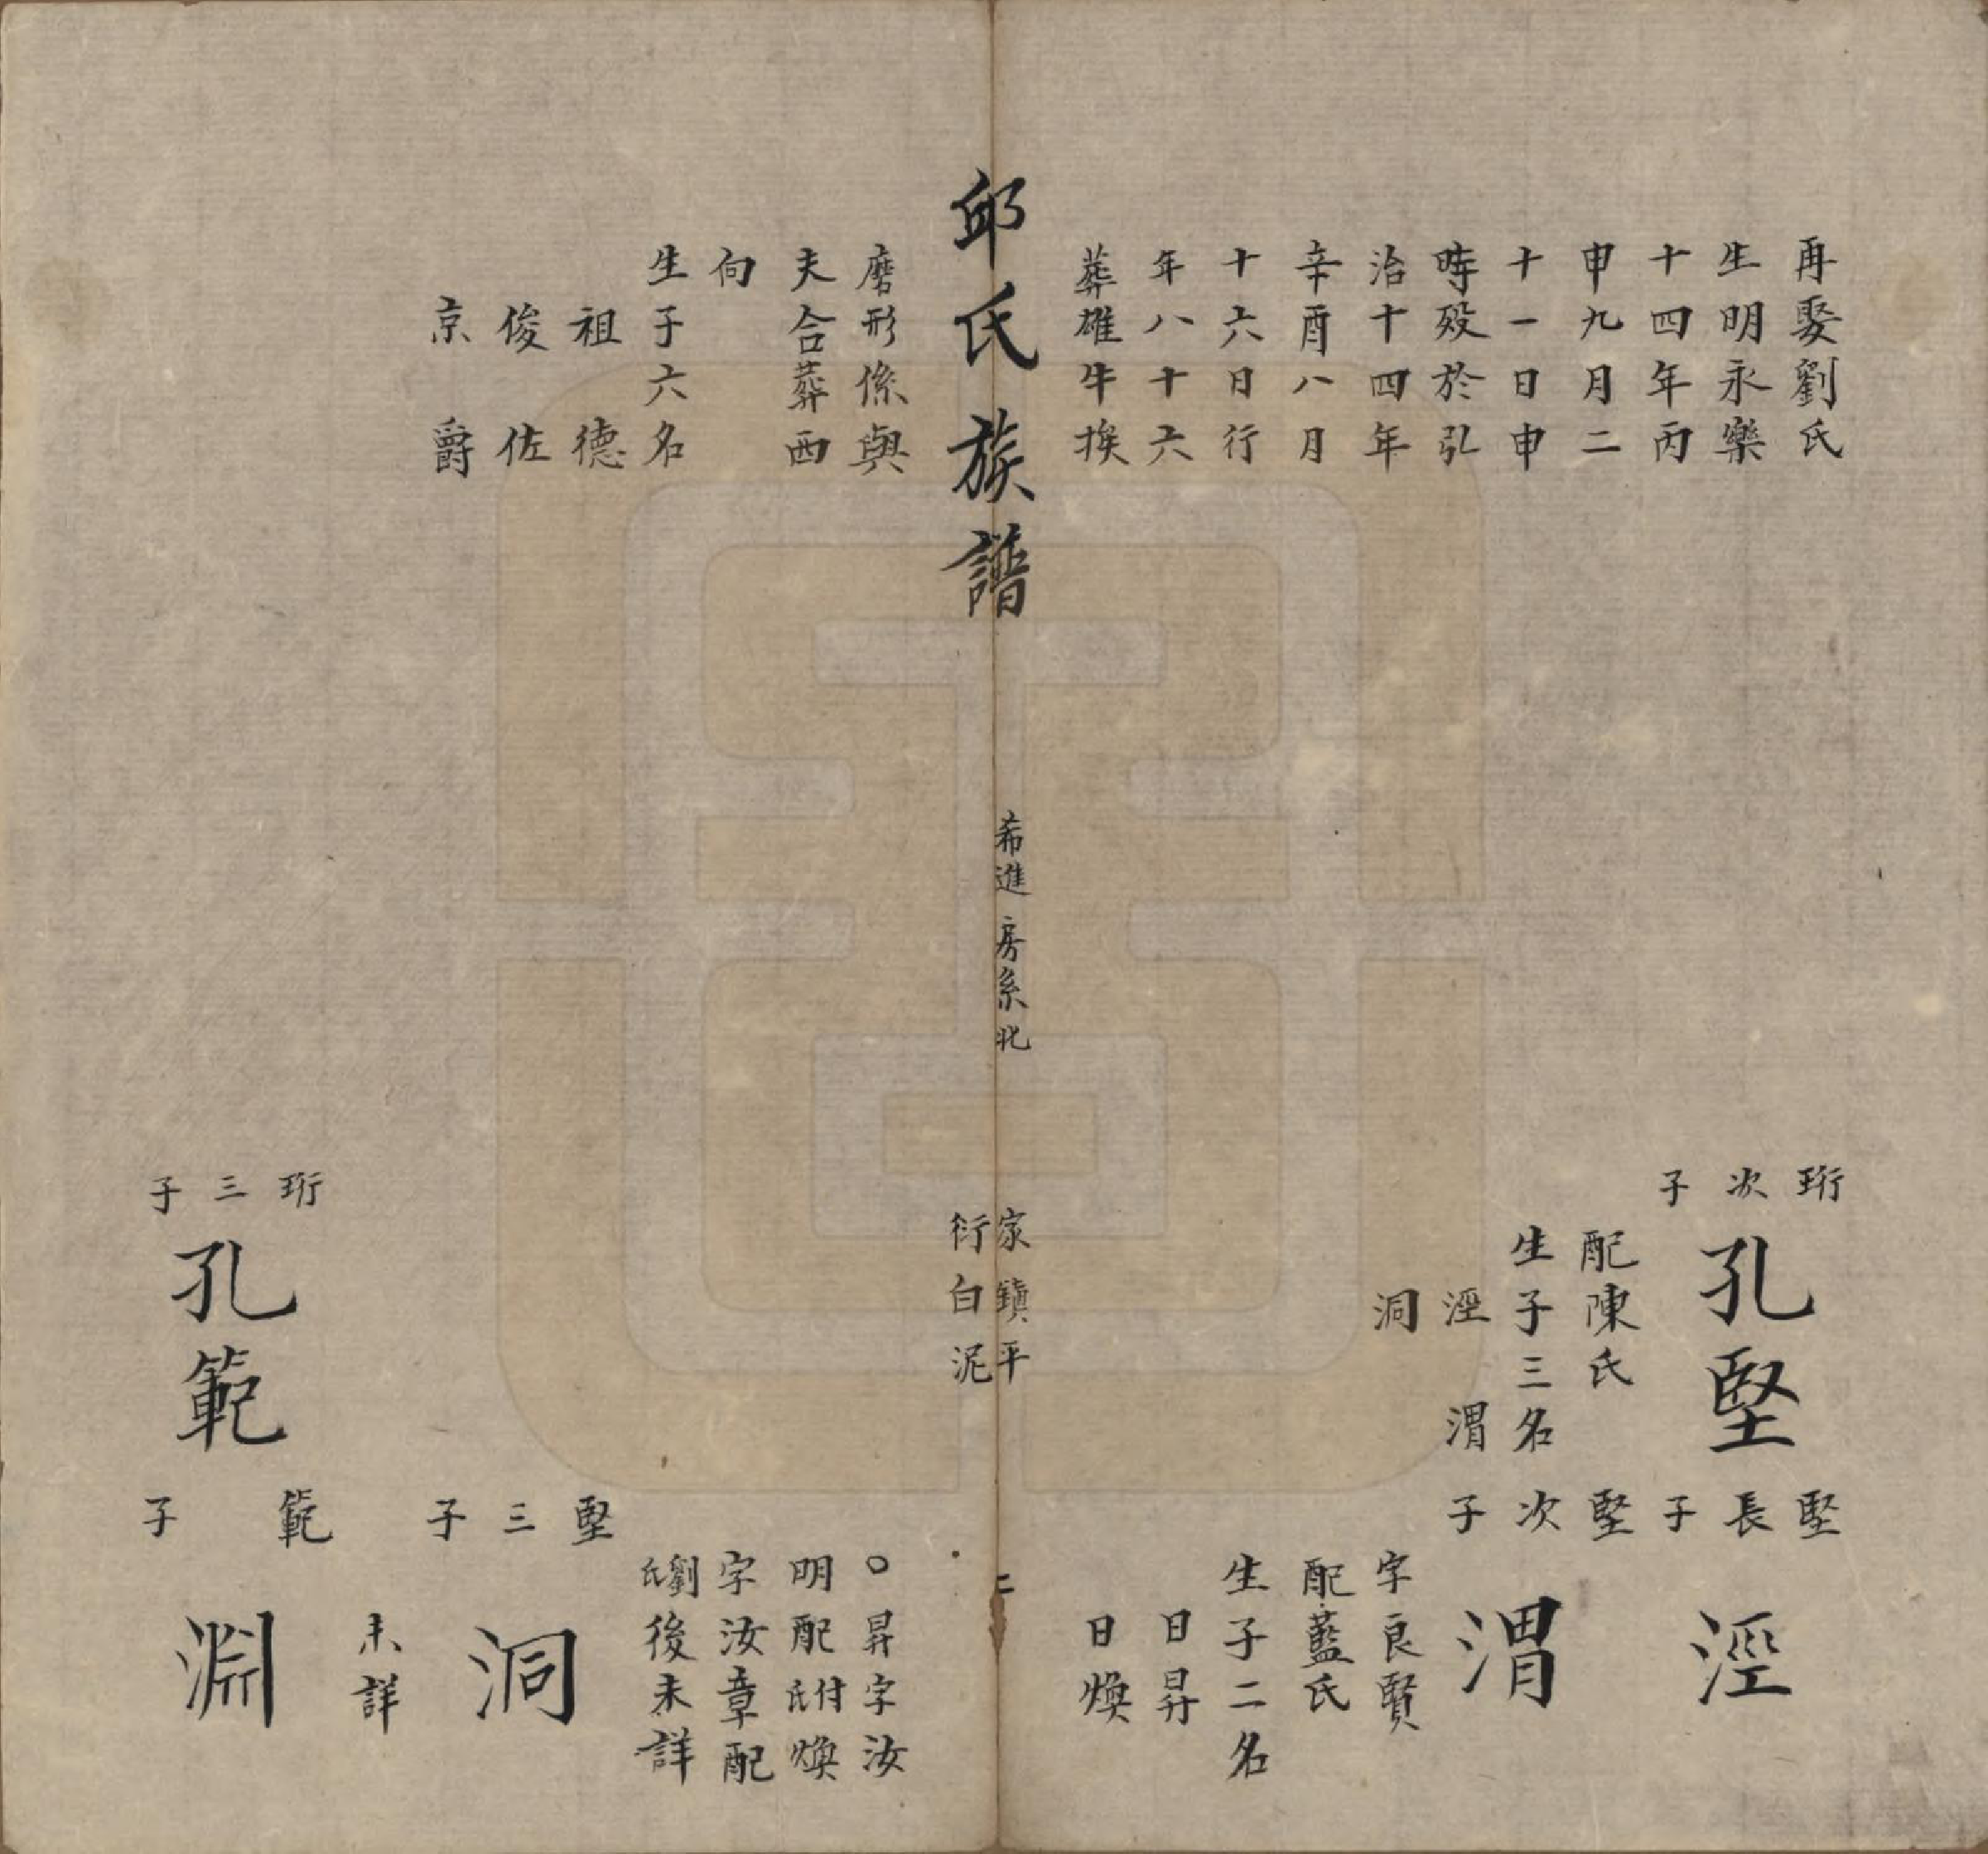 再娶劉氏
生明永樂
十四年丙
申九月二
十一日申
時殁於弘
治十四年
辛酉八月
十六日行
年八十六
葬雄牛挨
珩次子
孔堅
配陳氏
生子三名
涇 渭
洞
堅長子
涇
堅次子
渭
字良賢
配藍氏
生子二名
日昇
日煥
邱氏族譜
希進房系北
家鎮平
衍白泥
二
磨形係與
夫合葬西
向
生子六名
祖德
俊佐
京爵
○昇字汝
明配付氏煥
字汝章配
劉氏後未詳
堅三子
洞
未詳
珩三子
孔範
範子
淵